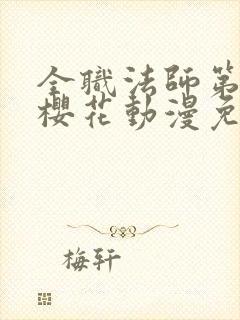 全職法師第
櫻花動漫免
梅轩